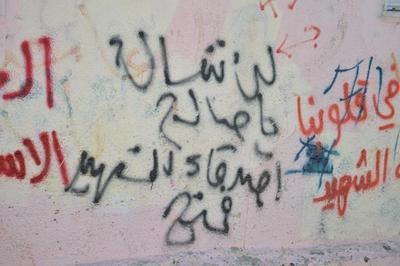 لن ننساك
يا صالح
اصدقاء الشهيد
فتح
في قلوبنا
الشهيد